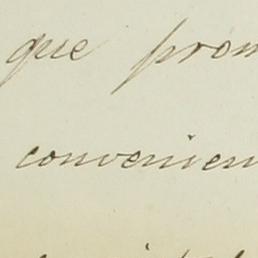 que prom
convenien